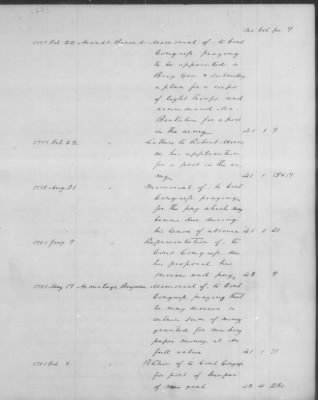 No Vol pa 9
1777 Feb 22 Arendt, Baron d' Memorial of, to Cont
Congress, praying
to be appointed a
Brig Gen. &
a plan for a corps
of light troops and
recommends Mr.
for a post
in the army 41 1 9
1777 Feb 22 " Letters to Robert Morris
re his application
for a post in the ar-
my 41 1 13&17
1778 Aug 21 " Memorial of, to Cont
Congress praying
for the pay which may
became due during
his leave of absence 41 1 21
1781 Jany 9 " Representation of, to
Cont Congress re
his proposal his
services and pay 42 9
1781 May 17 Armitage Memorial of, to Cont
Congress, praying that
he may receive a
certain sum of money
granted for making
paper money at its
full value 41 1 71
1781 Feb 8 " Petition of, to Cont Congress
for post of keeper
of new goal 42